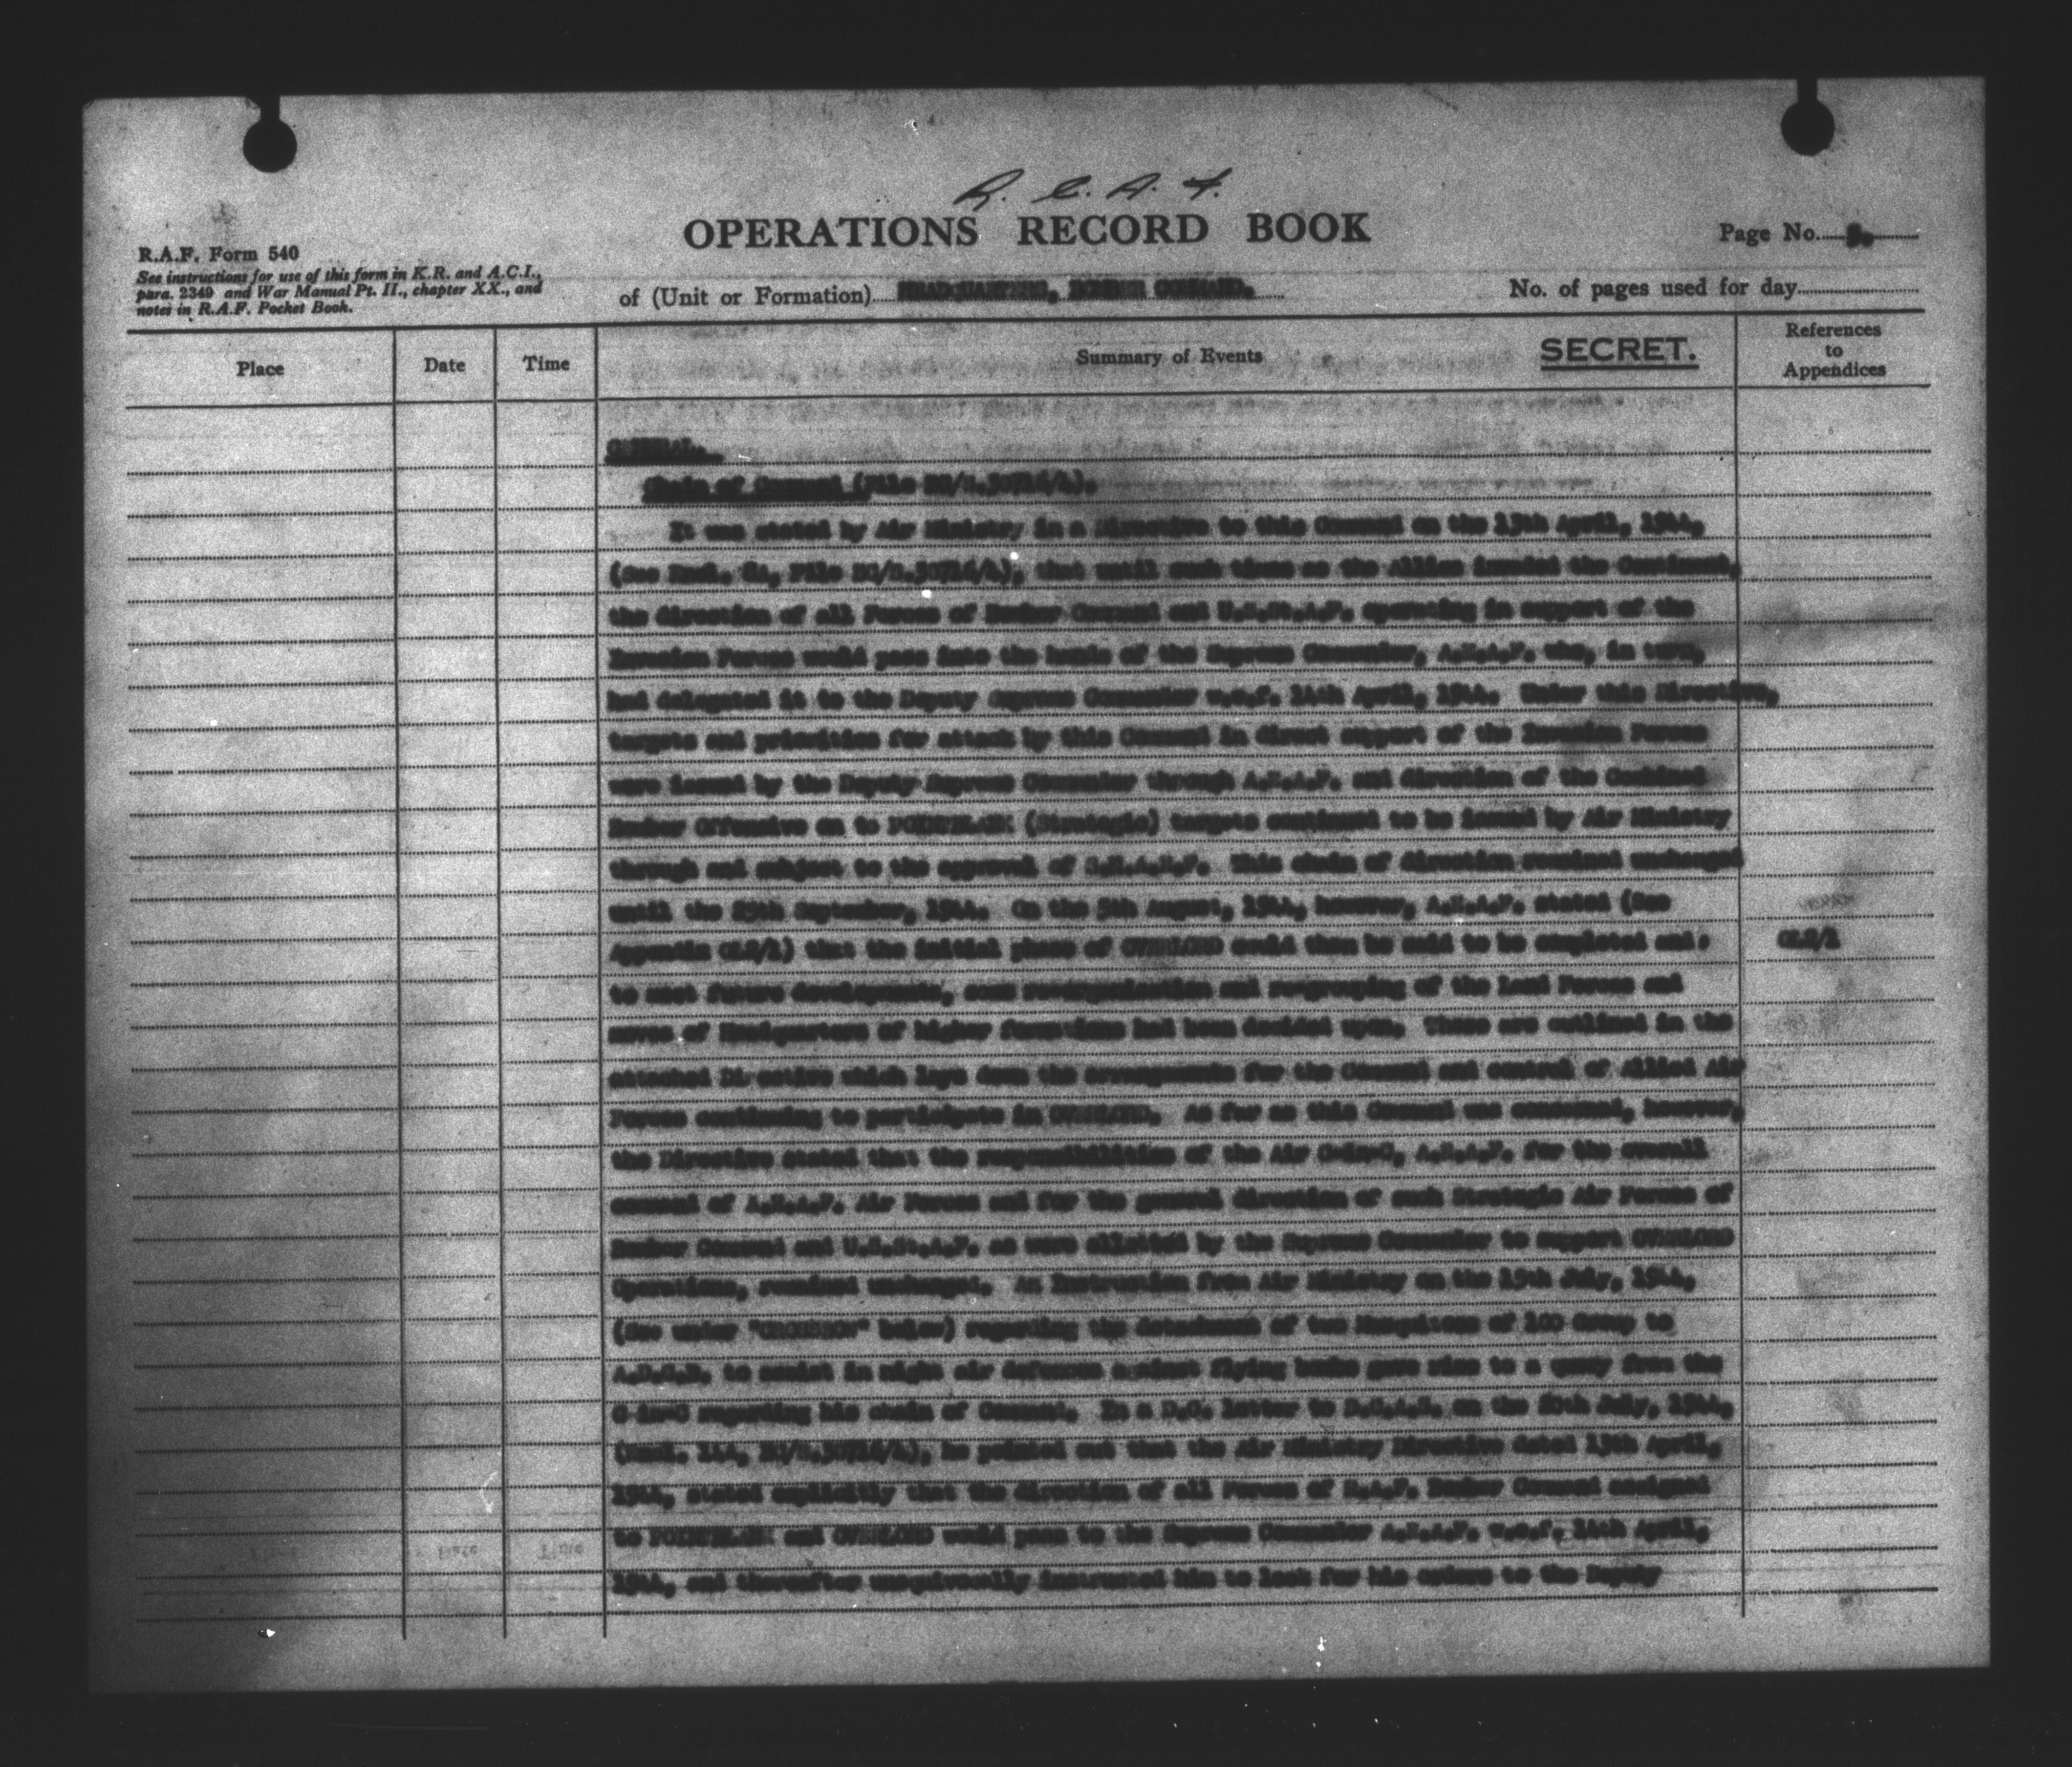 R. C. A. F.
OPERATIONS RECORD BOOK
Page No.
R.A.F. Form 540
See instructions for use of this form in K.R. and A.C.I.,
para. 2349 and War Manual Pt. II., chapter XX., and
notes in R.A.F. Pocket Book.
of (Unit or Formation) HEADQUARTERS, BOMBER COMMAND.
No. of pages used for day
Place
Date
Time
Summary of Events
SECRET.
References
to
Appendices
GENERAL.
Chain of Command (File
It was stated by Air Ministry in a Directive to this Command on the 13th April, 1944,
(See Encl. File that until such times as the Allies invaded the Continent,
the direction of all Forces of Bomber Command and U.S.St.A.F. operating in support of the
Invasion Forces would pass into the hands of the Supreme Commander, A.E.A.F. who, in turn,
had delegated it to the Deputy Supreme Commander w.e.f. 14th April, 1944. Under this Directive,
targets and priorities for attack by this Command in direct support of the Invasion Forces
were issued by the Deputy Supreme Commander through A.E.A.F. and direction of the Combined
Bomber Offensive on to POINTBLANK (Strategic) targets continued to be issued by Air Ministry
through and subject to the approval of S.H.A.E.F. This chain of direction remained unchanged
until the 25th September, 1944. On the 5th August, 1944, however, A.E.A.F. stated (See
Appendix that the initial phase of OVERLORD could then be said to be completed and:
to meet future developments, some reorganisation and regrouping of the Land Forces and
moves of Headquarters of higher formations had been decided upon. These are outlined in the
attached Directive which lays down the arrangements for the Command and control of Allied Air
Forces continuing to participate in OVERLORD. As far as this Command was concerned, however,
the Directive stated that the responsibilities of the Air C-in-C, A.E.A.F. for the overall
command of A.E.A.F. Air Forces and for the general direction of such Strategic Air Forces of
Bomber Command and U.S.St.A.F. as were allotted by the Supreme Commander to support OVERLORD
Operations, remained unchanged. An Instruction from Air Ministry on the 19th July, 1944,
(See under "CROSSBOW" below) regarding the detachment of two Mosquitoes of 100 Group to
A.D.G.B. to assist in night air defences against flying bombs gave rise to a query from the
C-in-C regarding his chain of Command. In a D.O. letter to D.C.A.S. on the 20th July, 1944,
(Encl. he pointed out that the Air Ministry Directive dated 13th April,
1944, stated explicitly that the direction of all Forces of R.A.F. Bomber Command assigned
to POINTBLANK and OVERLORD would pass to the Supreme Commander A.E.A.F. w.e.f. 14th April,
1944, and thereafter unequivocally instructed him to look for his orders to the Deputy